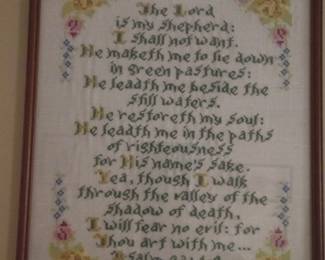 The Lord
is my shepherd:
I shall not want.
He maketh me to lie down
in green pastures:
He leadth me beside the
still waters.
He restoreth my soul:
He leadth me in the paths
of righteousness
for His name's sake.
Yea, though I walk
through the valley of the
shadow of death,
I will fear no evil: for
Thou art with me...
Psalm